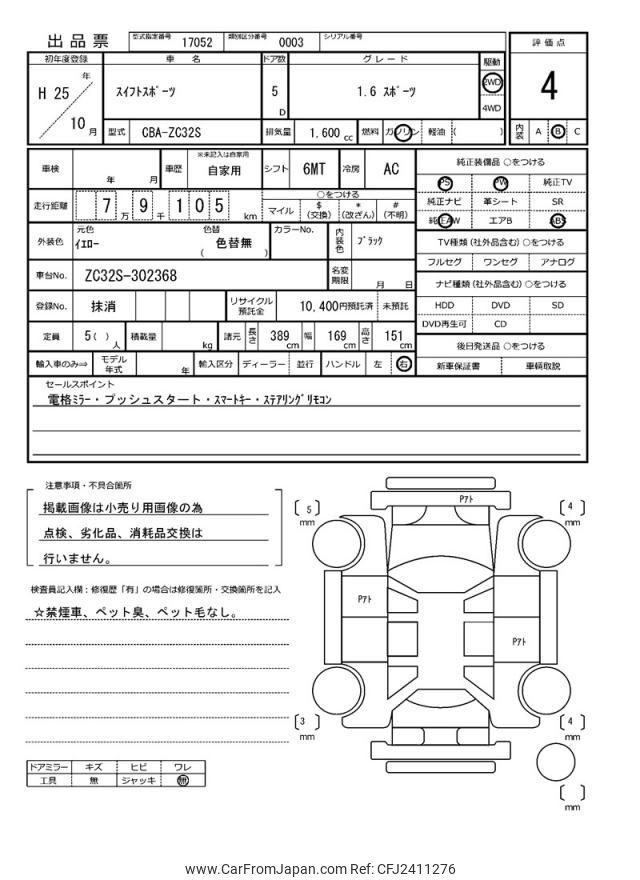 出品票 型式指定番号 17052 類別区分番号 0003 シリアル番号
初年度登録 車 名 ドア数 グレード 駆動 評価点
H 25 年 10 月 スイフトスポーツ 5 D 1.6 スポーツ 2WD 4WD 4
型式 CBA-ZC32S 排気量 1,600 cc 燃料 ガソリン 軽油 ( ) 内装 A B C
車検 年 月 車歴 ※未記入は自家用 自家用 シフト 6MT 冷房 AC 純正装備品 ○をつける
PS PW 純正TV
走行距離 7 万 9 千 1 0 5 km ○をつける 純正ナビ 革シート SR
マイル $ (交換) * (改ざん) # (不明) 純正AW エアB ABS
外装色 元色 イエロー 色替 色替無 ( ) カラーNo. 内装色 ブラック TV種類 (社外品含む) ○をつける
フルセグ ワンセグ アナログ
車台No. ZC32S-302368 名変期限 月 日 ナビ種類 (社外品含む) ○をつける
登録No. 抹消 リサイクル預託金 10,400円預託済 未預託 HDD DVD SD
DVD再生可 CD
定員 5 ( ) 人 積載量 kg 諸元 長さ 389 cm 幅 169 cm 高さ 151 cm 後日発送品 ○をつける
輸入車のみ⇒ モデル年式 年 輸入区分 ディーラー 並行 ハンドル 左 右 新車保証書 車輌取説
セールスポイント
電格ミラー・プッシュスタート・スマートキー・ステアリングリモコン
注意事項・不具合箇所
掲載画像は小売り用画像の為
点検、劣化品、消耗品交換は
行いません。
検査員記入欄：修復歴「有」の場合は修復箇所・交換箇所を記入
☆禁煙車、ペット臭、ペット毛なし。
ドアミラー キズ ヒビ ワレ
工具 無 ジャッキ 無
Pアト
〔 5 〕 mm 〔 4 〕 mm
Pアト
Pアト
〔 3 〕 mm 〔 4 〕 mm
〔 〕 mm
www.CarFromJapan.com Ref: CFJ2411276